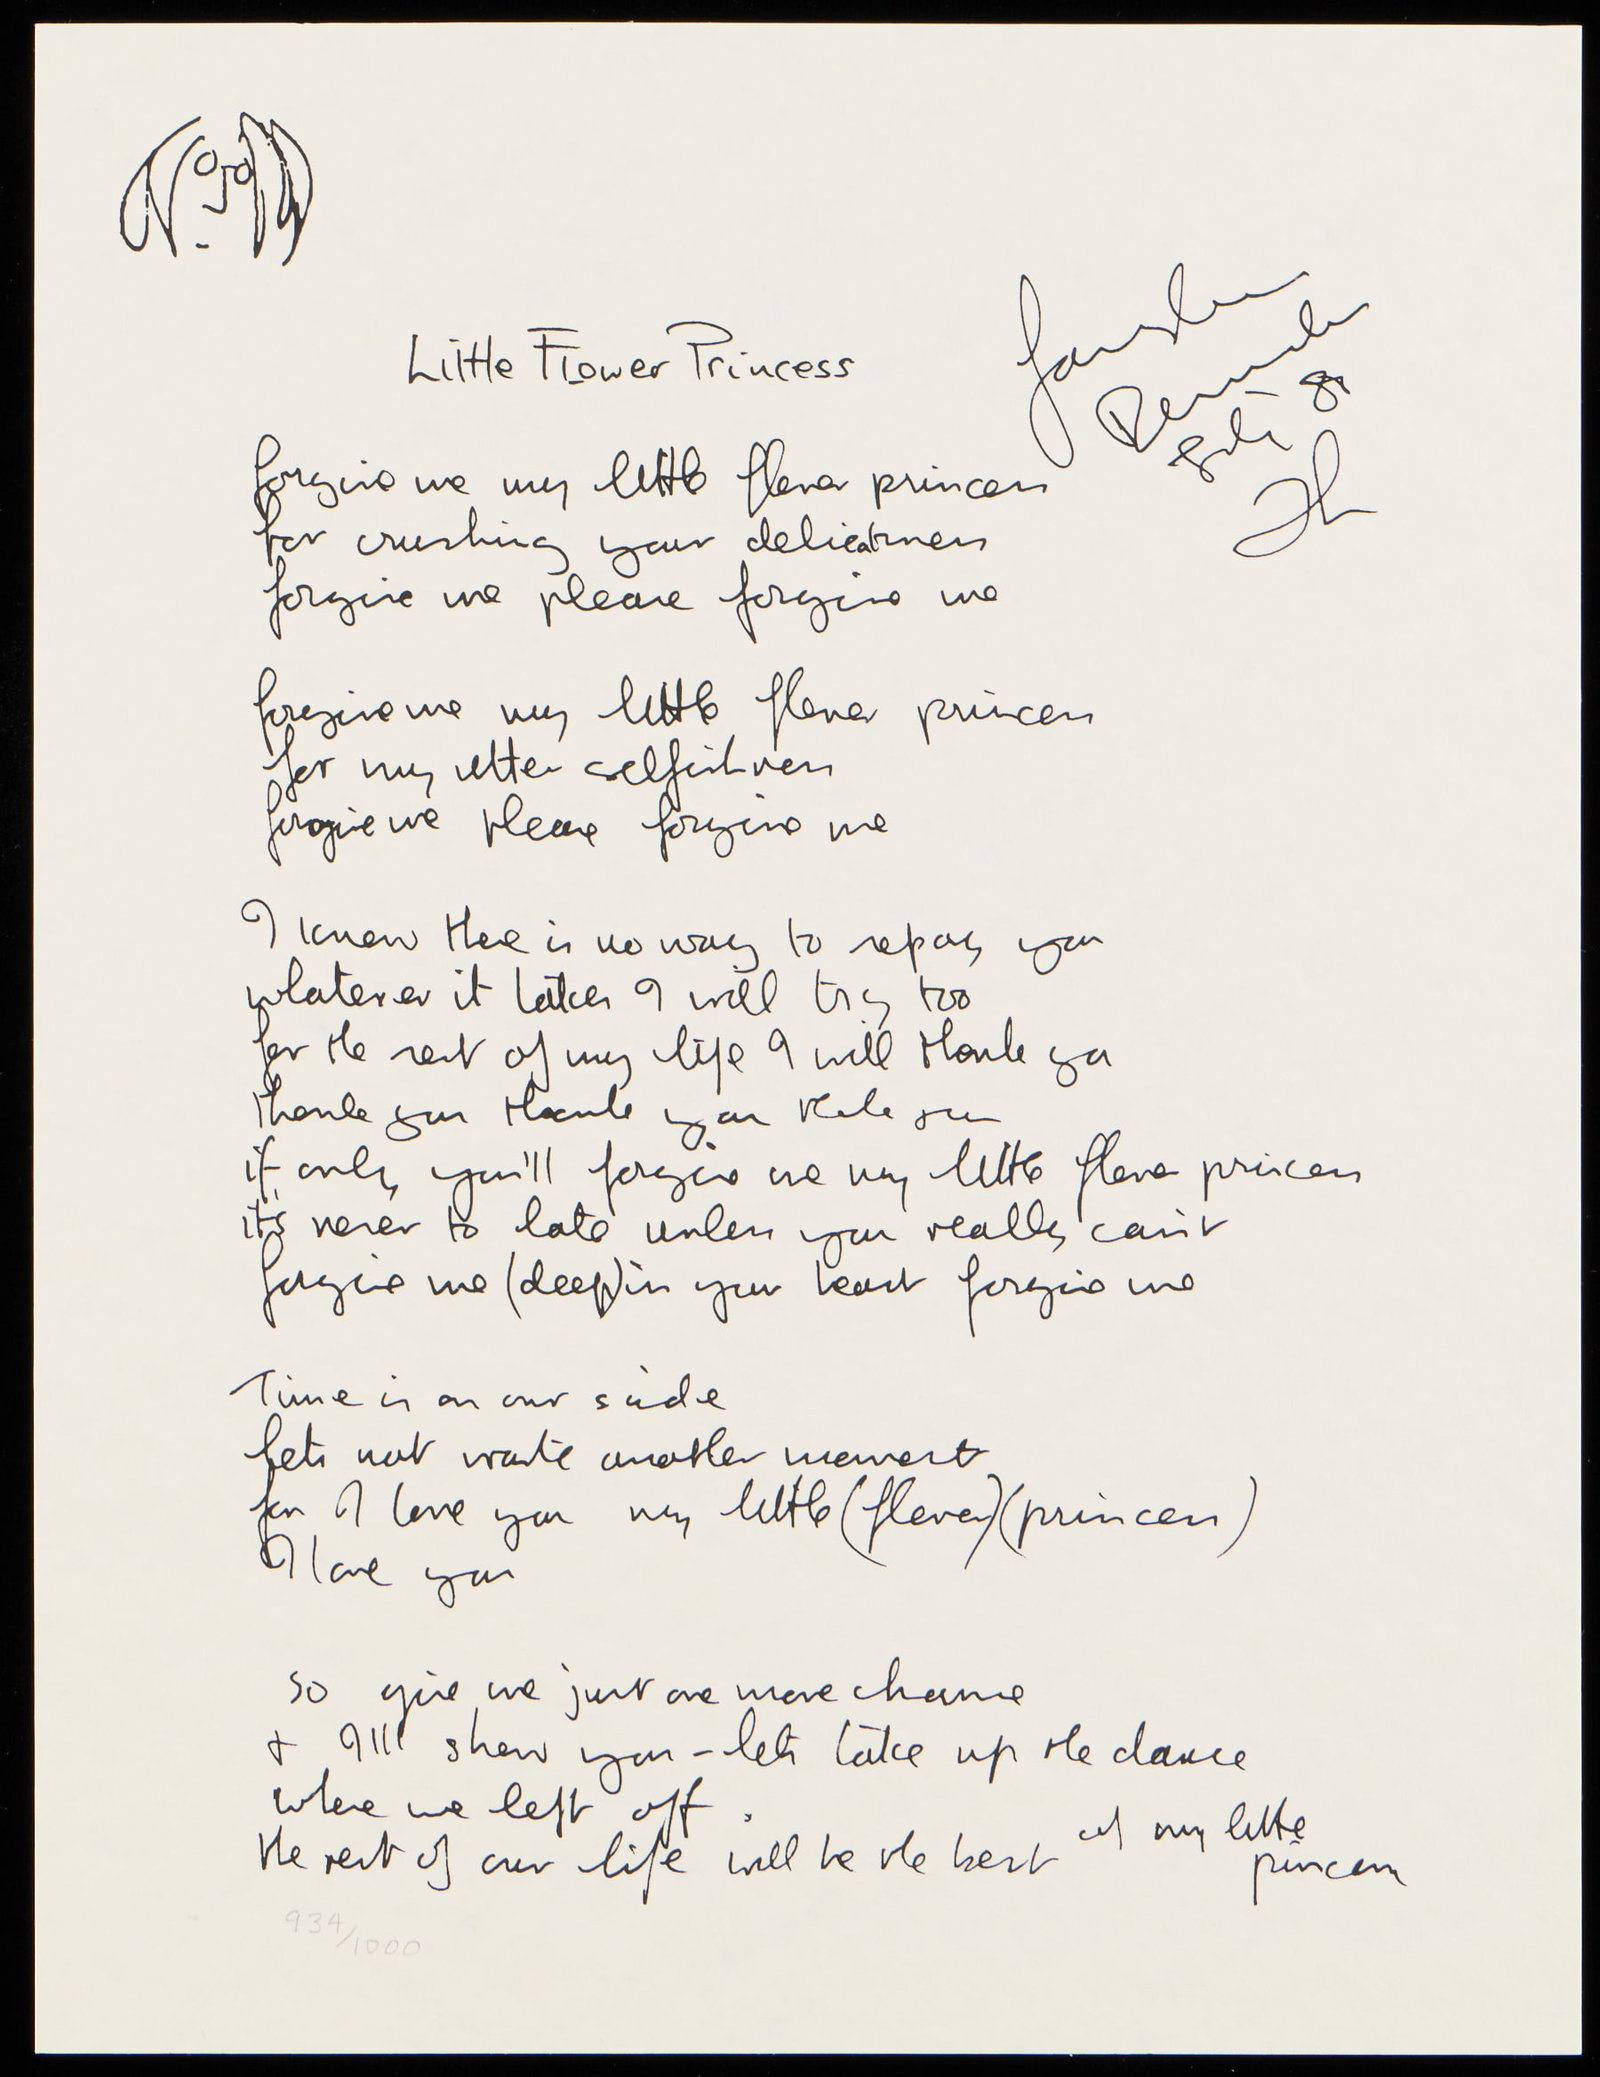 Little Flower Princess
Fairylands
Bermuda
80
JL
forgive me my little flower princess
for crushing your delicateness
forgive me please forgive me
forgive me my little flower princess
for my utter selfishness
forgive me please forgive me
I know there is no way to repay you
whatever it takes I will try too
for the rest of my life I will thank you
thank you thank you thank you
if only you'll forgive me my little flower princess
it's never to late unless you really can't
forgive me (deep) in your heart forgive me
Time is on our side
lets not waste another moment
for I love you my little (flower) (princess)
I love you
so give me just one more chance
+ I'll show you - lets take up the dance
where we left off.
the rest of our life will be the best of my little
princess
934/1000